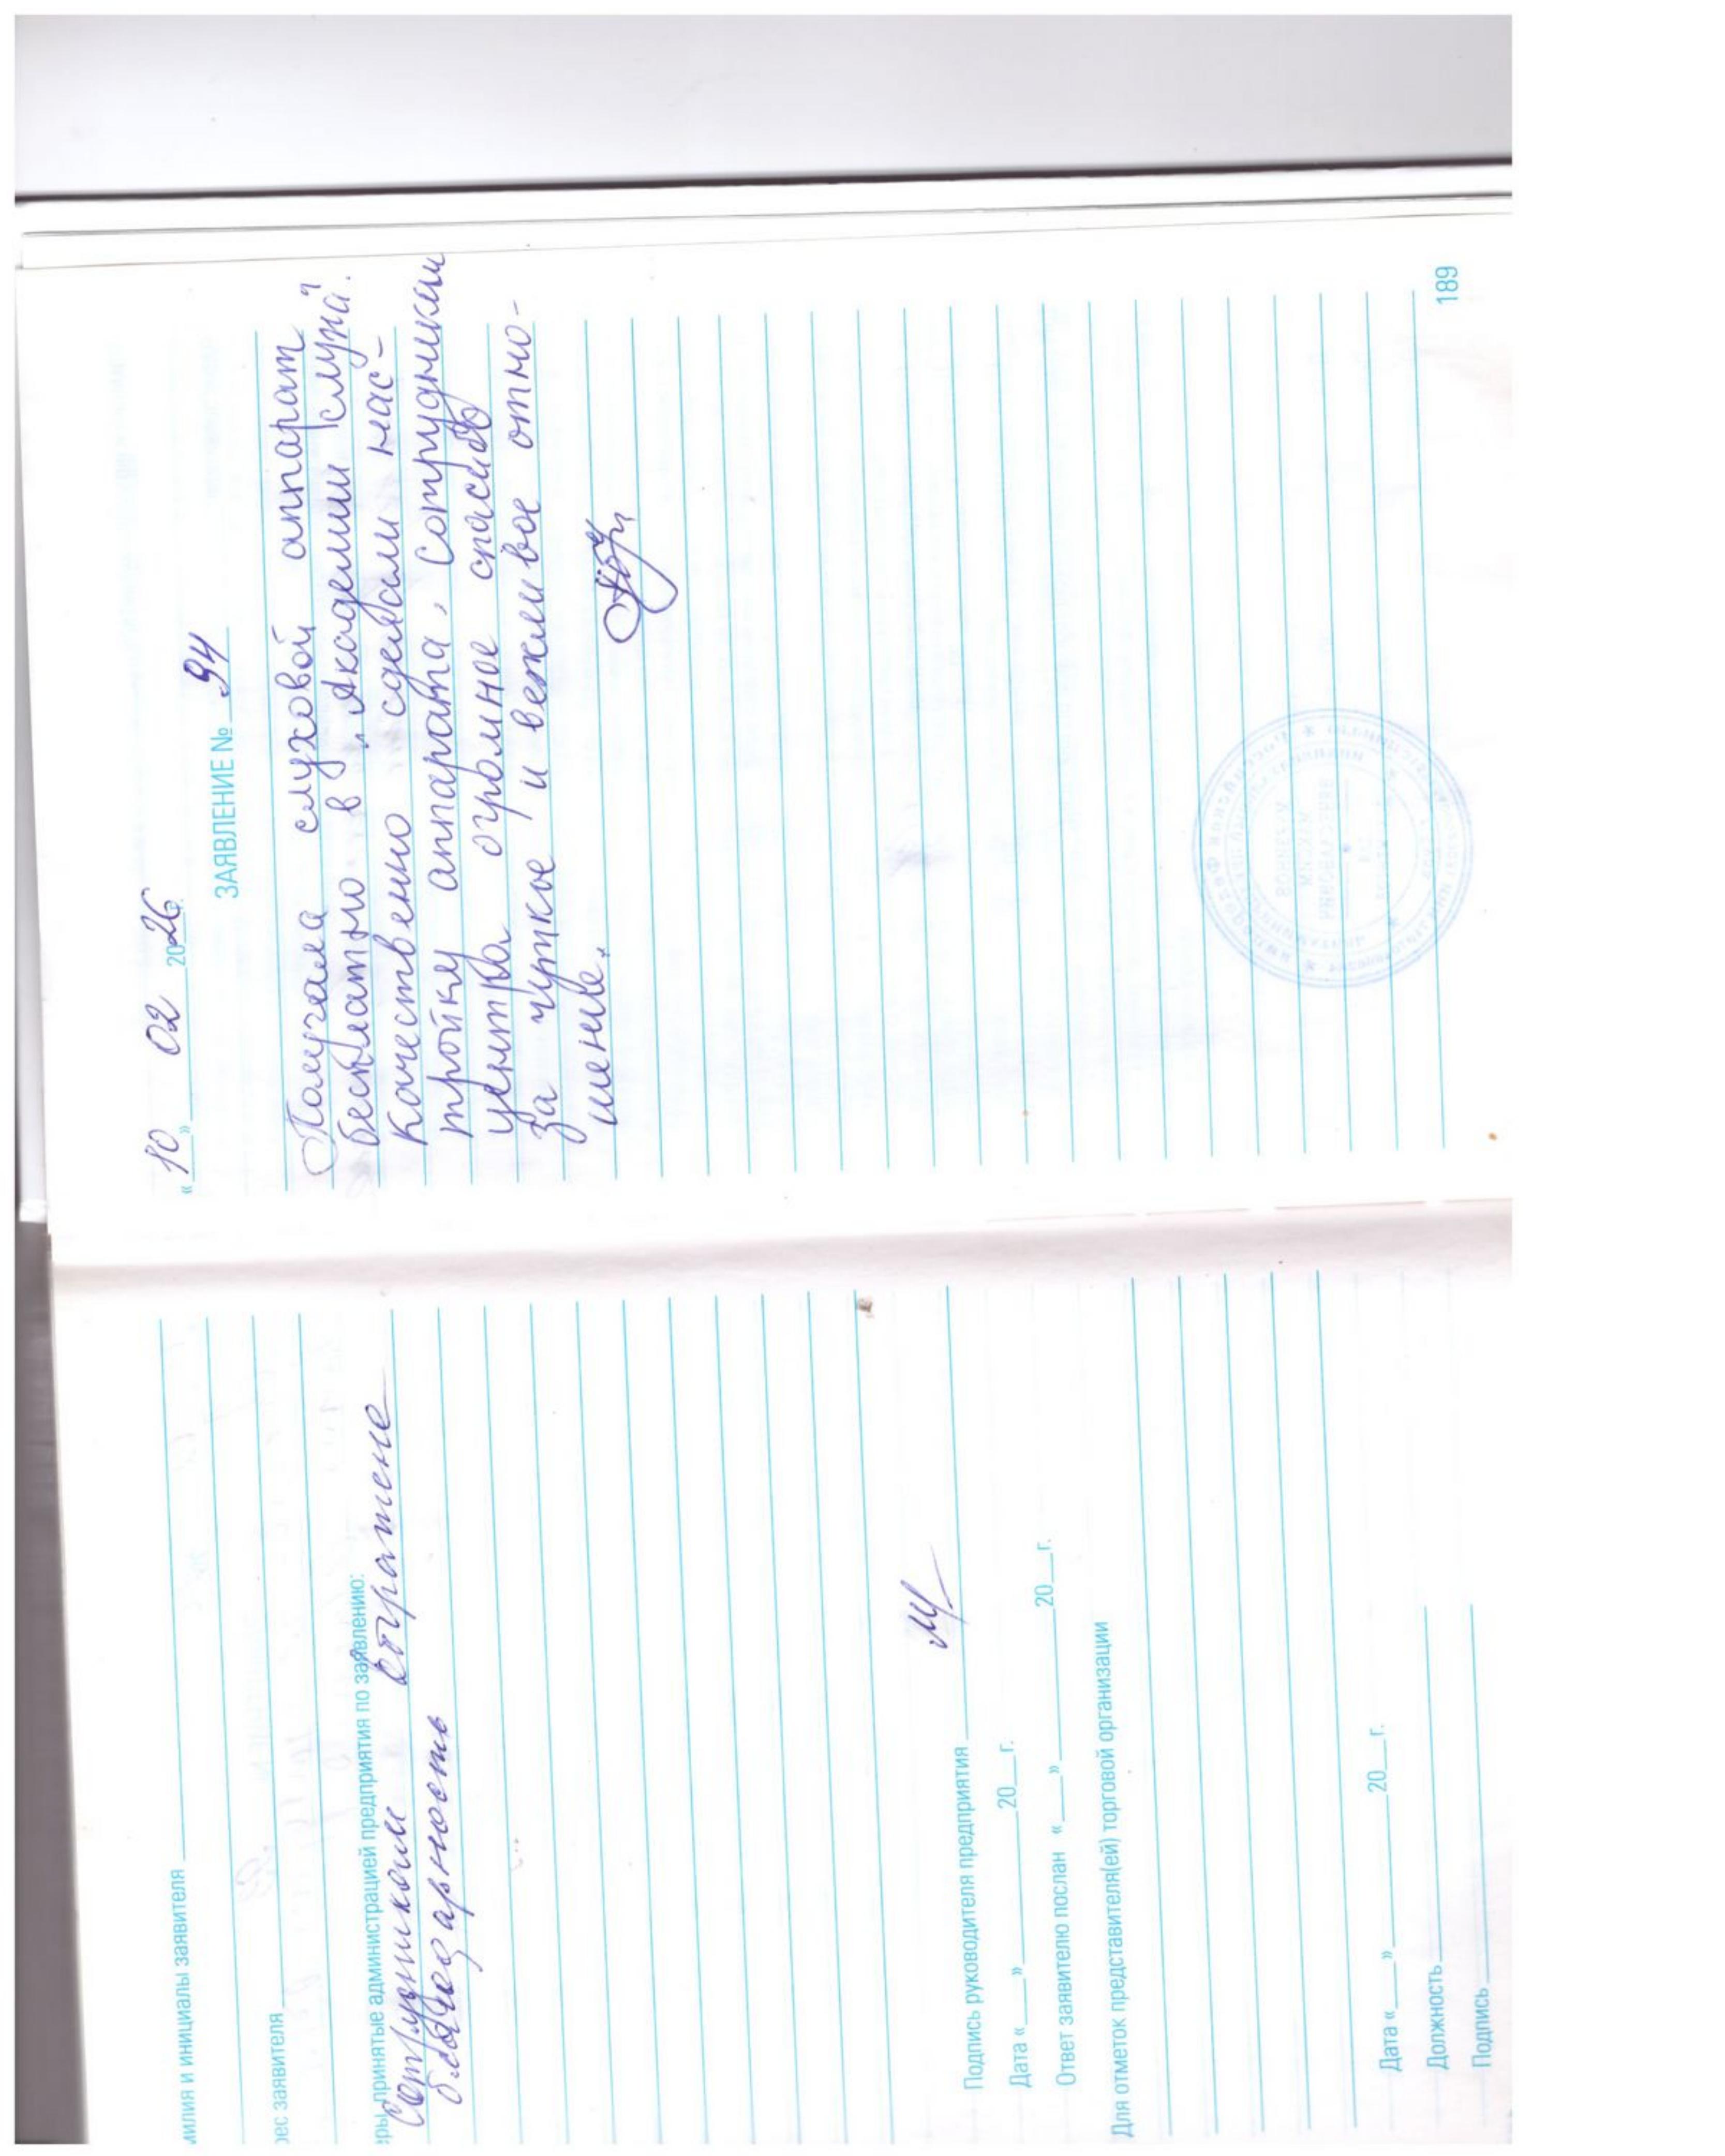 милия и инициалы заявителя
рес заявителя
еры, принятые администрацией предприятия по заявлению:
Сотрудникам выражена
благодарность
Подпись руководителя предприятия
Дата «___» ______ 20__г.
Ответ заявителю послан «___» ______ 20__г.
Для отметок представителя(ей) торговой организации
Дата «___» ______ 20__г.
Должность
Подпись
«10» 02 2026 г.
ЗАЯВЛЕНИЕ № 94
Получила слуховой аппарат
бесплатно в „Академии слуха“.
Качественно сделали нас-
тройку аппарата, сотрудникам
центра огромное спасибо
за чуткое и вежливое отно-
шение.
189